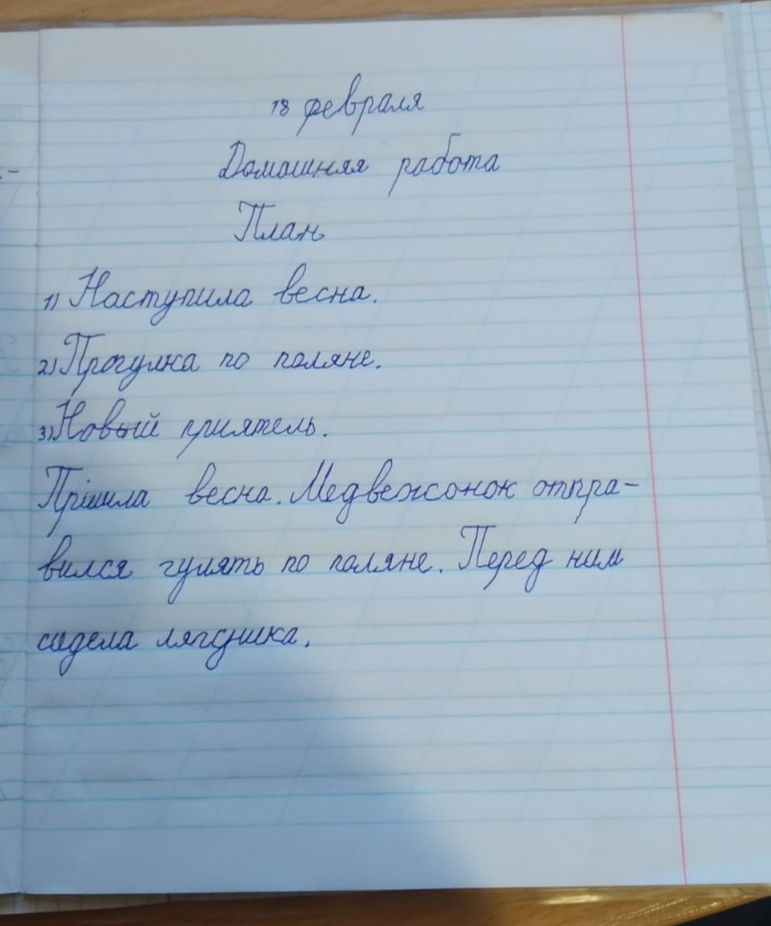 18 февраля
Домашняя работа
План
1) Наступила весна.
2) Прогулка по поляне.
3) Новый приятель.
Пришла весна. Медвежонок отпра-
вился гулять по поляне. Перед ним
сидела лягушка.